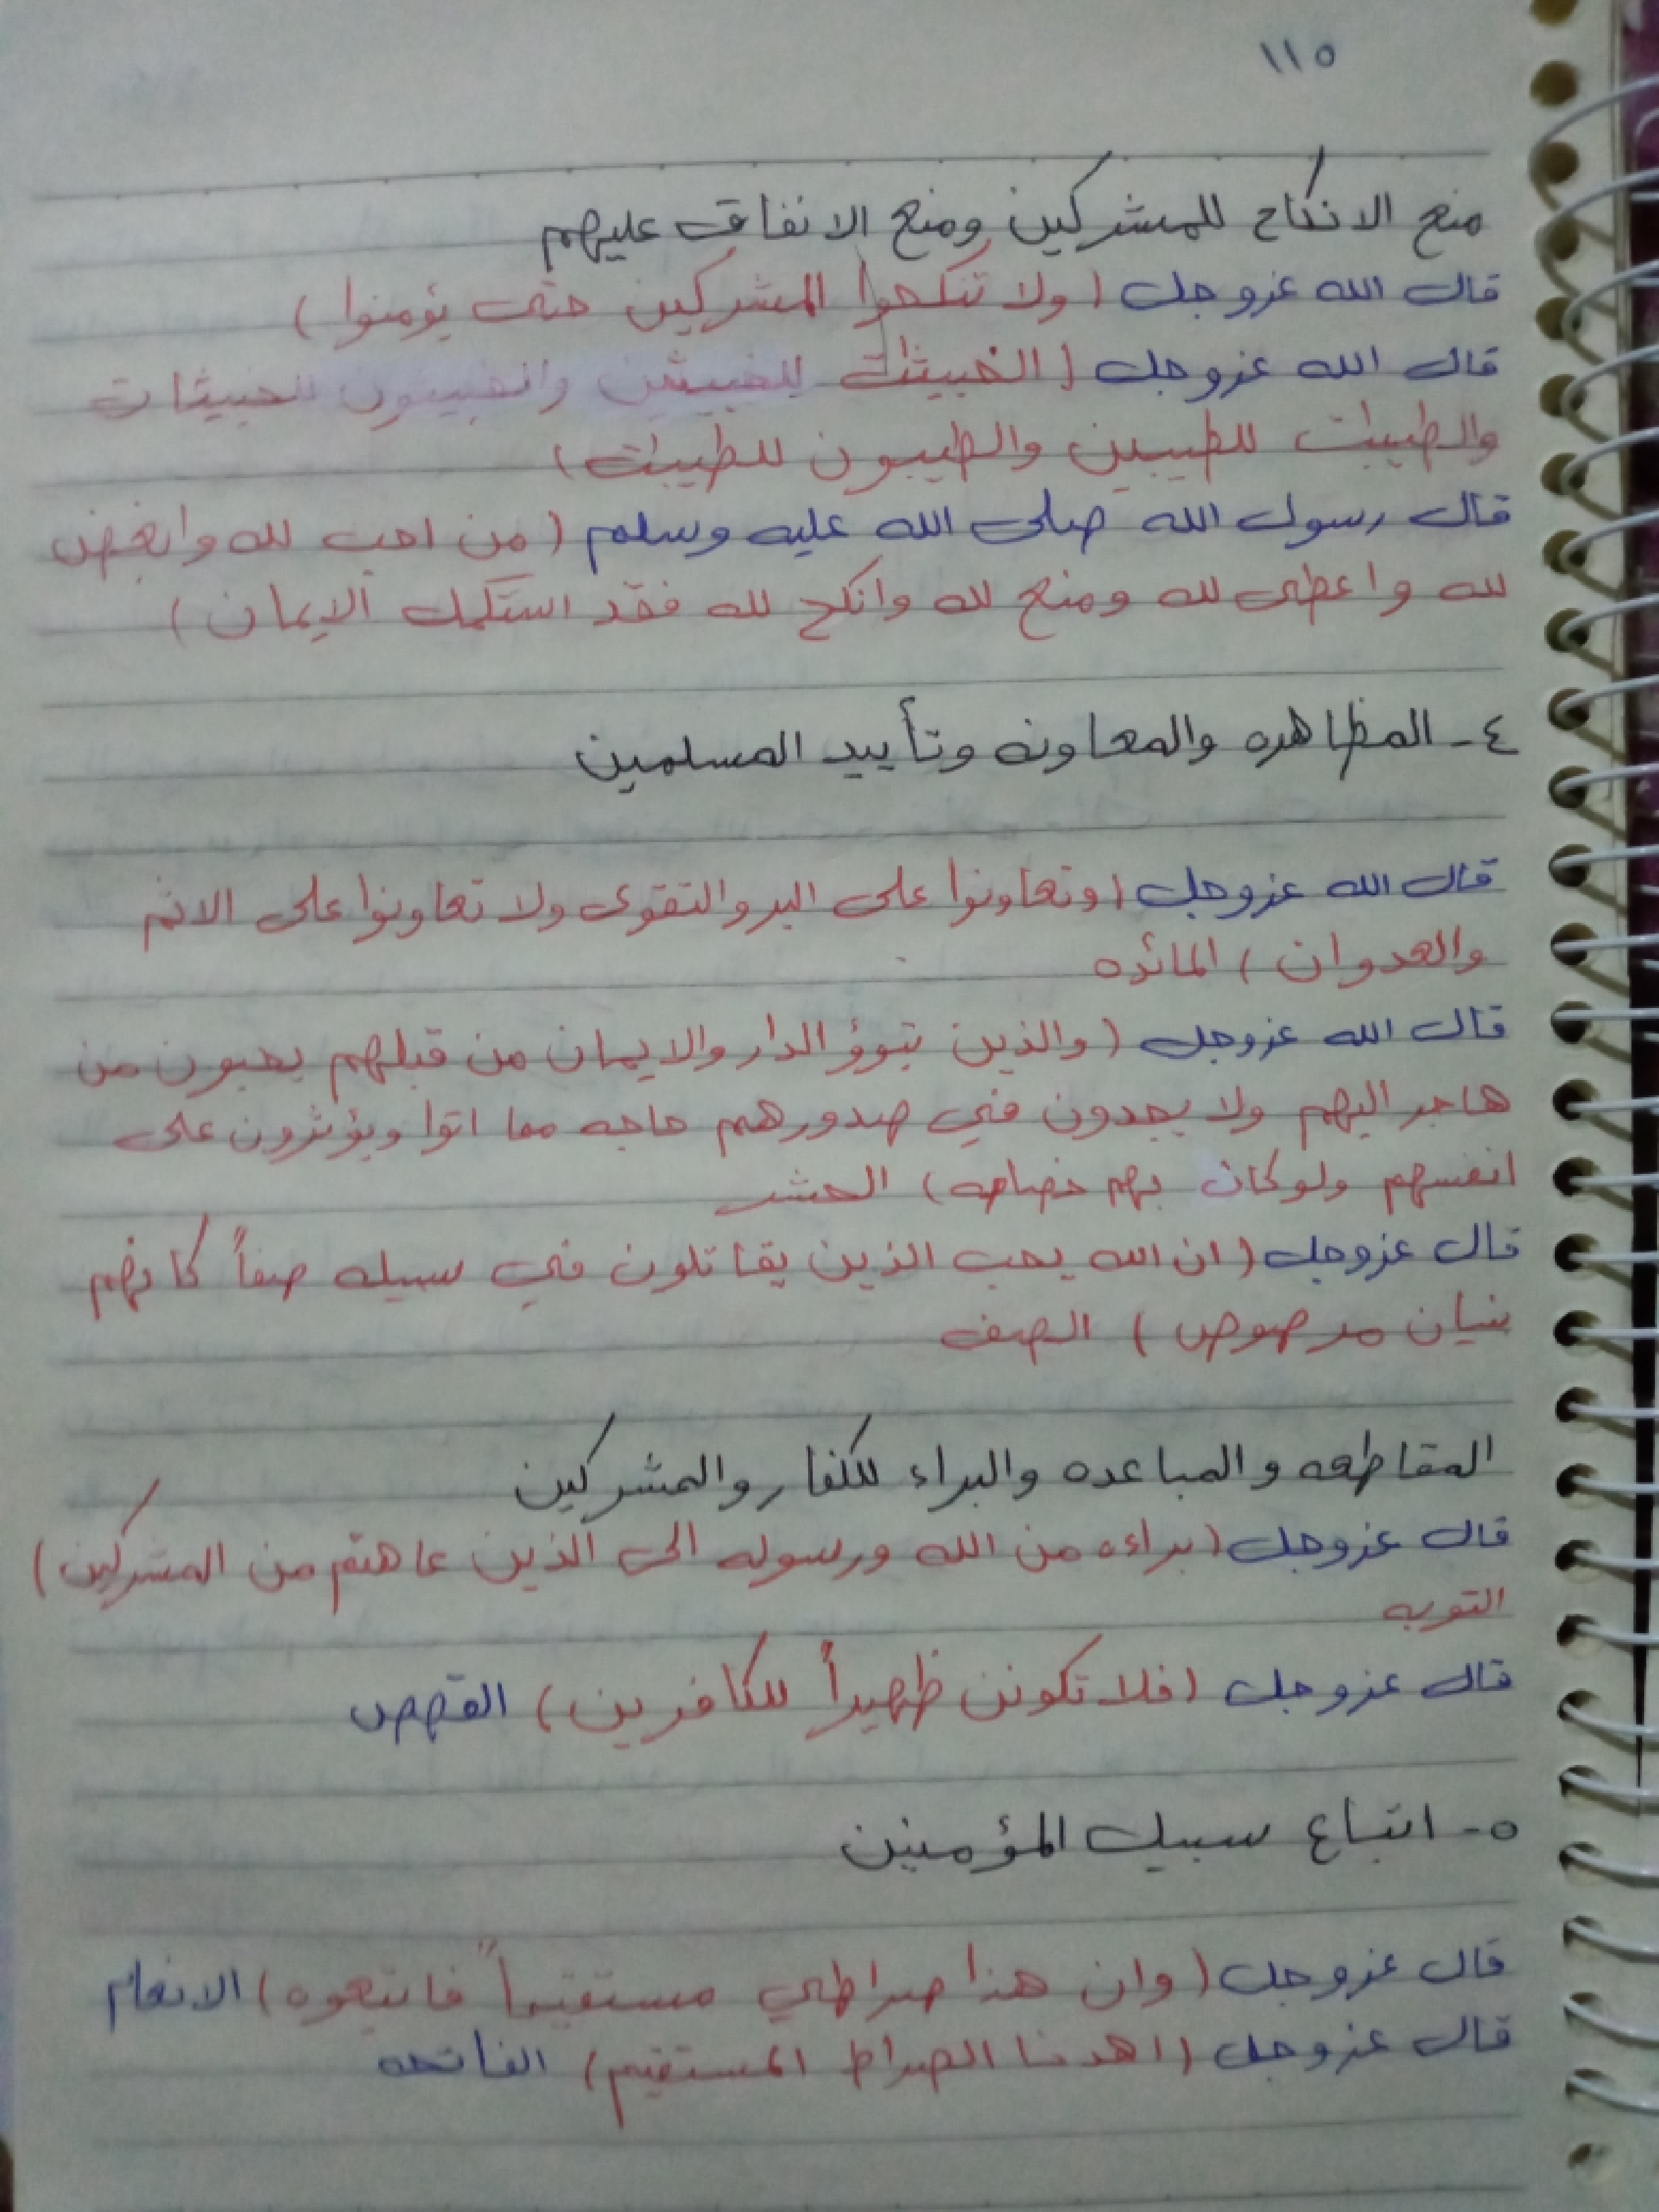 ١١٥
منع الانكاح للمشركين ومنع الانفاق عليهم
قال الله عزوجل (ولا تنكحوا المشركين حتى يؤمنوا)
قال الله عزوجل (الخبيثات للخبيثين والخبيثون للخبيثات
والطيبات للطيبين والطيبون للطيبات)
قال رسول الله صلى الله عليه وسلم (من احب لله وابغض
لله واعطى لله ومنع لله وانكح لله فقد استكمل الايمان)
٤- المظاهره والمعاونه وتأييد المسلمين
قال الله عزوجل (وتعاونوا على البر والتقوى ولا تعاونوا على الاثم
والعدوان) المائده
قال الله عزوجل (والذين تبوؤ الدار والايمان من قبلهم يحبون من
هاجر اليهم ولا يجدون في صدورهم حاجه مما اتوا ويؤثرون على
انفسهم ولو كان بهم خصاصه) الحشر
قال عزوجل (ان الله يحب الذين يقاتلون في سبيله صفاً كانهم
بنيان مرصوص) الصف
المقاطعه والمباعده والبراء للكفار والمشركين
قال عزوجل (براءه من الله ورسوله الى الذين عاهتم من المشركين)
التوبه
قال عزوجل (فلا تكونن ظهيراً للكافرين) القصص
٥- اتباع سبيل المؤمنين
قال عزوجل (وان هذا صراطي مستقيماً فاتبعوه) الانعام
قال عزوجل (اهدنا الصراط المستقيم) الفاتحه